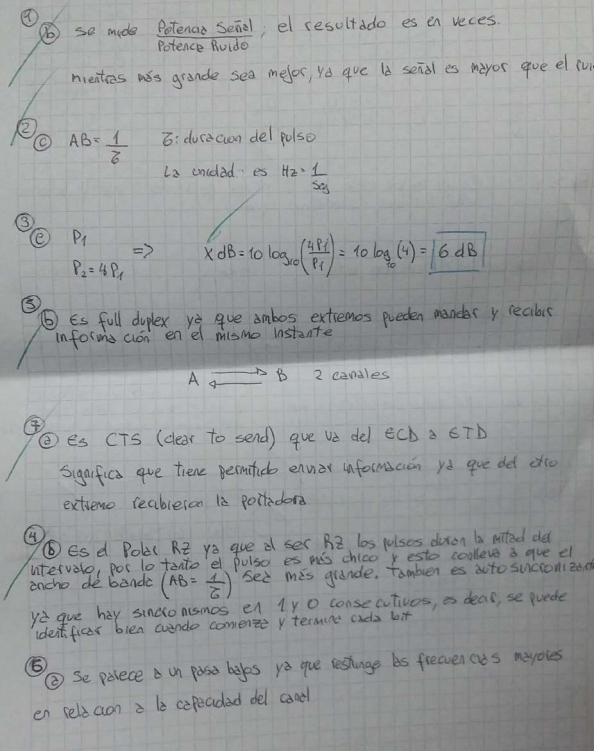 1
b se mide Potencia Señal / Potencia Ruido, el resultado es en veces.
mientras más grande sea mejor, ya que la señal es mayor que el rui
2
c AB = 1/τ τ: duración del pulso
La unidad es Hz = 1/seg
3
e P1
P2 = 4P1 => X dB = 10 log10 (4P1/P1) = 10 log10 (4) = 6 dB
5
b Es full duplex ya que ambos extremos pueden mandar y recibir
información en el mismo instante
A ⇄ B 2 canales
7
a Es CTS (clear to send) que va del ECD a ETD
Significa que tiene permitido enviar información ya que del otro
extremo recibieron la portadora
4
b Es el Polar RZ ya que al ser RZ los pulsos duran la mitad del
intervalo, por lo tanto el pulso es más chico y esto conlleva a que el
ancho de banda (AB = 1/τ) sea más grande. Tambien es autosincronizan
ya que hay sincronismos en 1 y 0 consecutivos, es decir, se puede
identificar bien cuando comienza y termina cada bit
6
a Se parece a un pasa bajos ya que restringe las frecuencias mayores
en relacion a la capacidad del canal